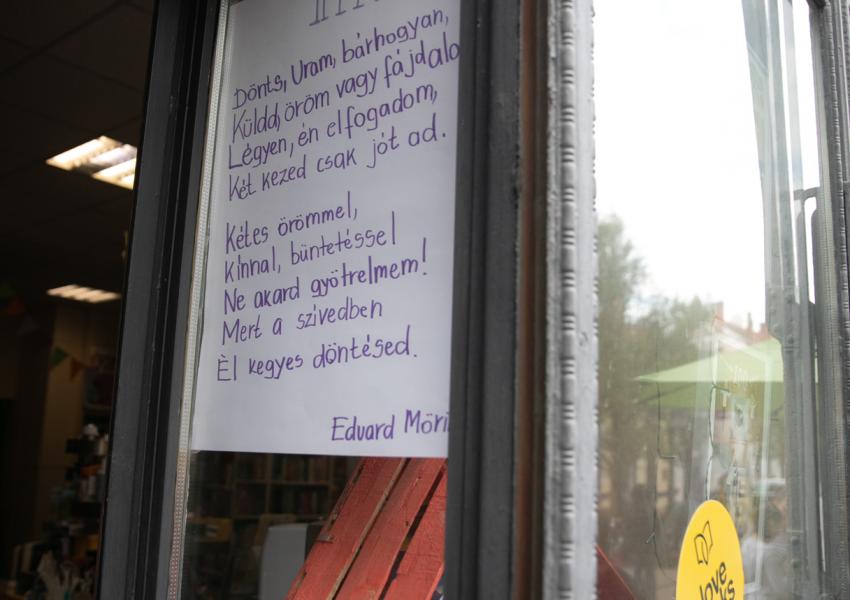 Dönts, Uram, bárhogyan,
Küldd, öröm vagy fájdalo
Légyen, én elfogadom,
Két kezed csak jót ad.
Kétes örömmel,
Kínnal, büntetéssel
Ne akard gyötrelmem!
Mert a szivedben
Èl kegyes döntésed.
Eduard Möri
love
ks